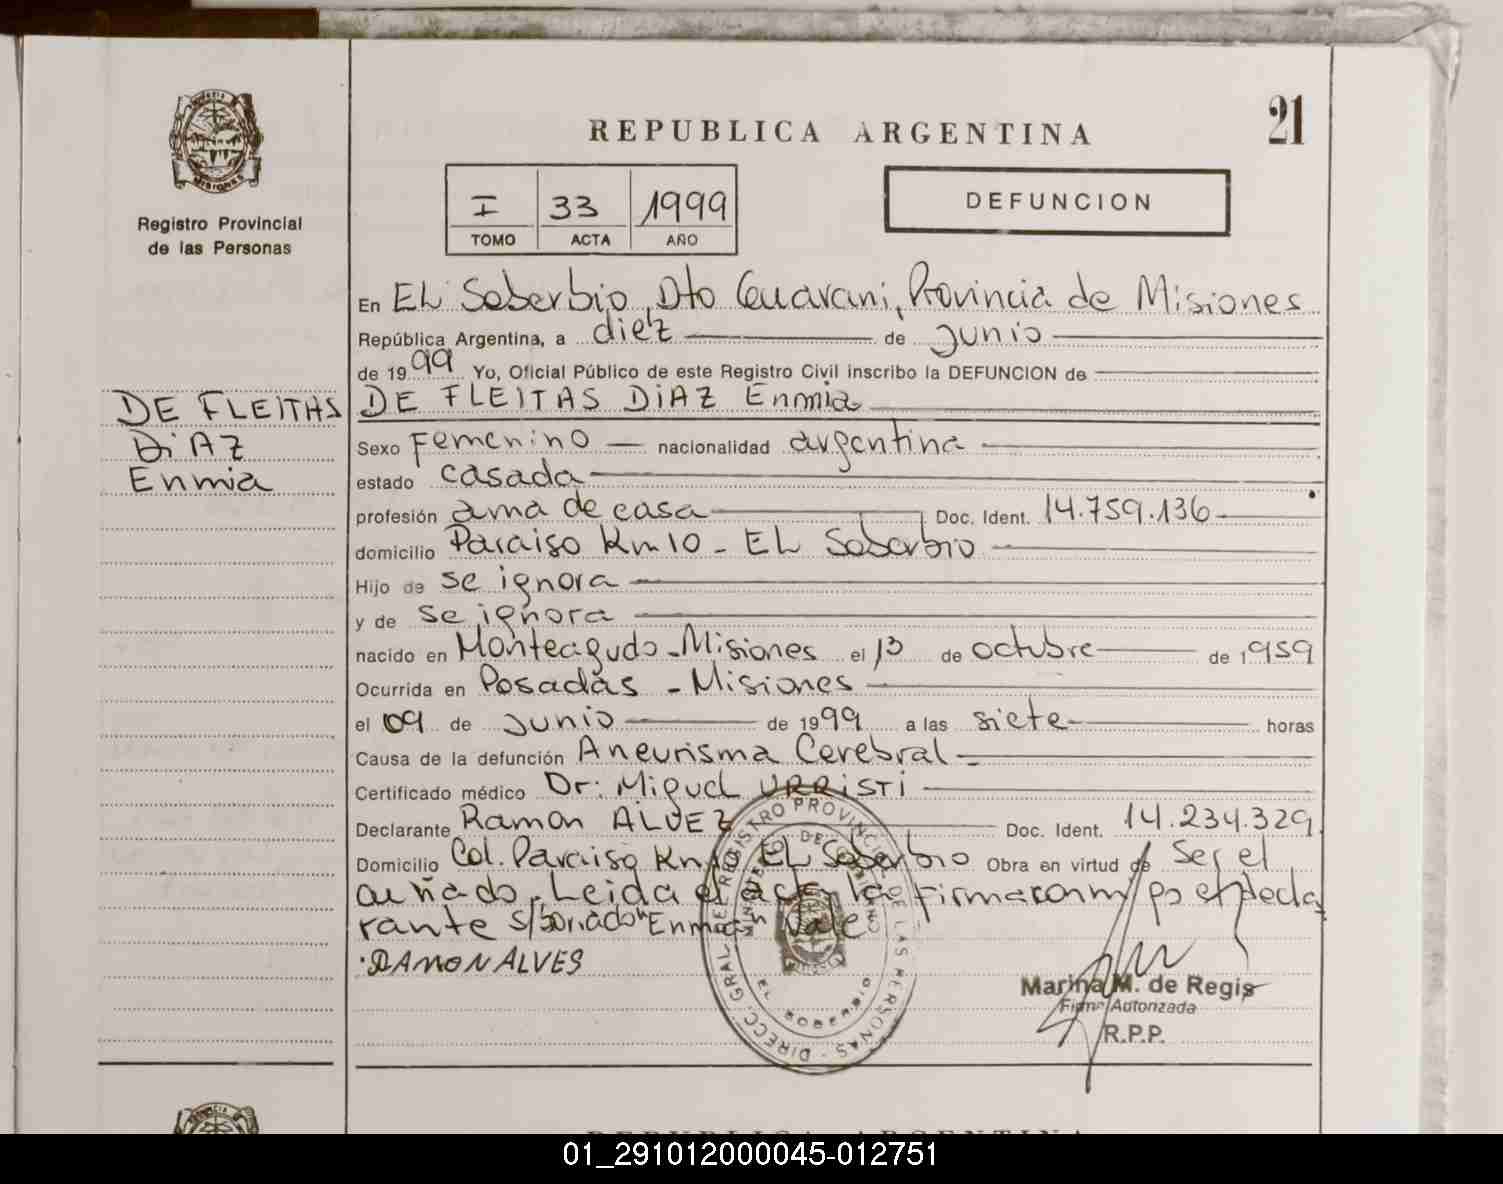 21
REPUBLICA ARGENTINA
MISIONES
Registro Provincial
de las Personas
I 33 1999
TOMO ACTA AÑO
DEFUNCION
En EL Soberbio, Dto Guarani, Provincia de Misiones
República Argentina, a diez de junio
de 1999 Yo, Oficial Público de este Registro Civil inscribo la DEFUNCION de
DE FLEITAS DIAZ Enmia
DE FLEITAS
DiAZ
Enmia
Sexo Femenino nacionalidad argentina
estado casada
profesión ama de casa Doc. Ident. 14.759.136
domicilio Paraiso Km 10 - EL Soberbio
Hijo de se ignora
y de se ignora
nacido en Monteagudo - Misiones el 13 de octubre de 1959
Ocurrida en Posadas - Misiones
el 09 de junio de 1999 a las siete horas
Causa de la defunción Aneurisma Cerebral
Certificado médico Dr: Miguel URRiSTi
Declarante Ramon ALVEZ Doc. Ident. 14.234.329
Domicilio Col. Paraiso Km 10 EL Soberbio Obra en virtud de Ser el
cuñado. Leida el acta la firma conmigo el decla
rante s/borrado "Enmia" Vale
RAMON ALVES
DIRECC. GRAL. DEL REGISTRO PROVINCIAL DE LAS PERSONAS
MINISTERIO DE GOBIERNO
EL SOBERBIO
Marina M. de Regis
Firma Autorizada
R.P.P.
REPUBLICA ARGENTINA
01_291012000045-012751